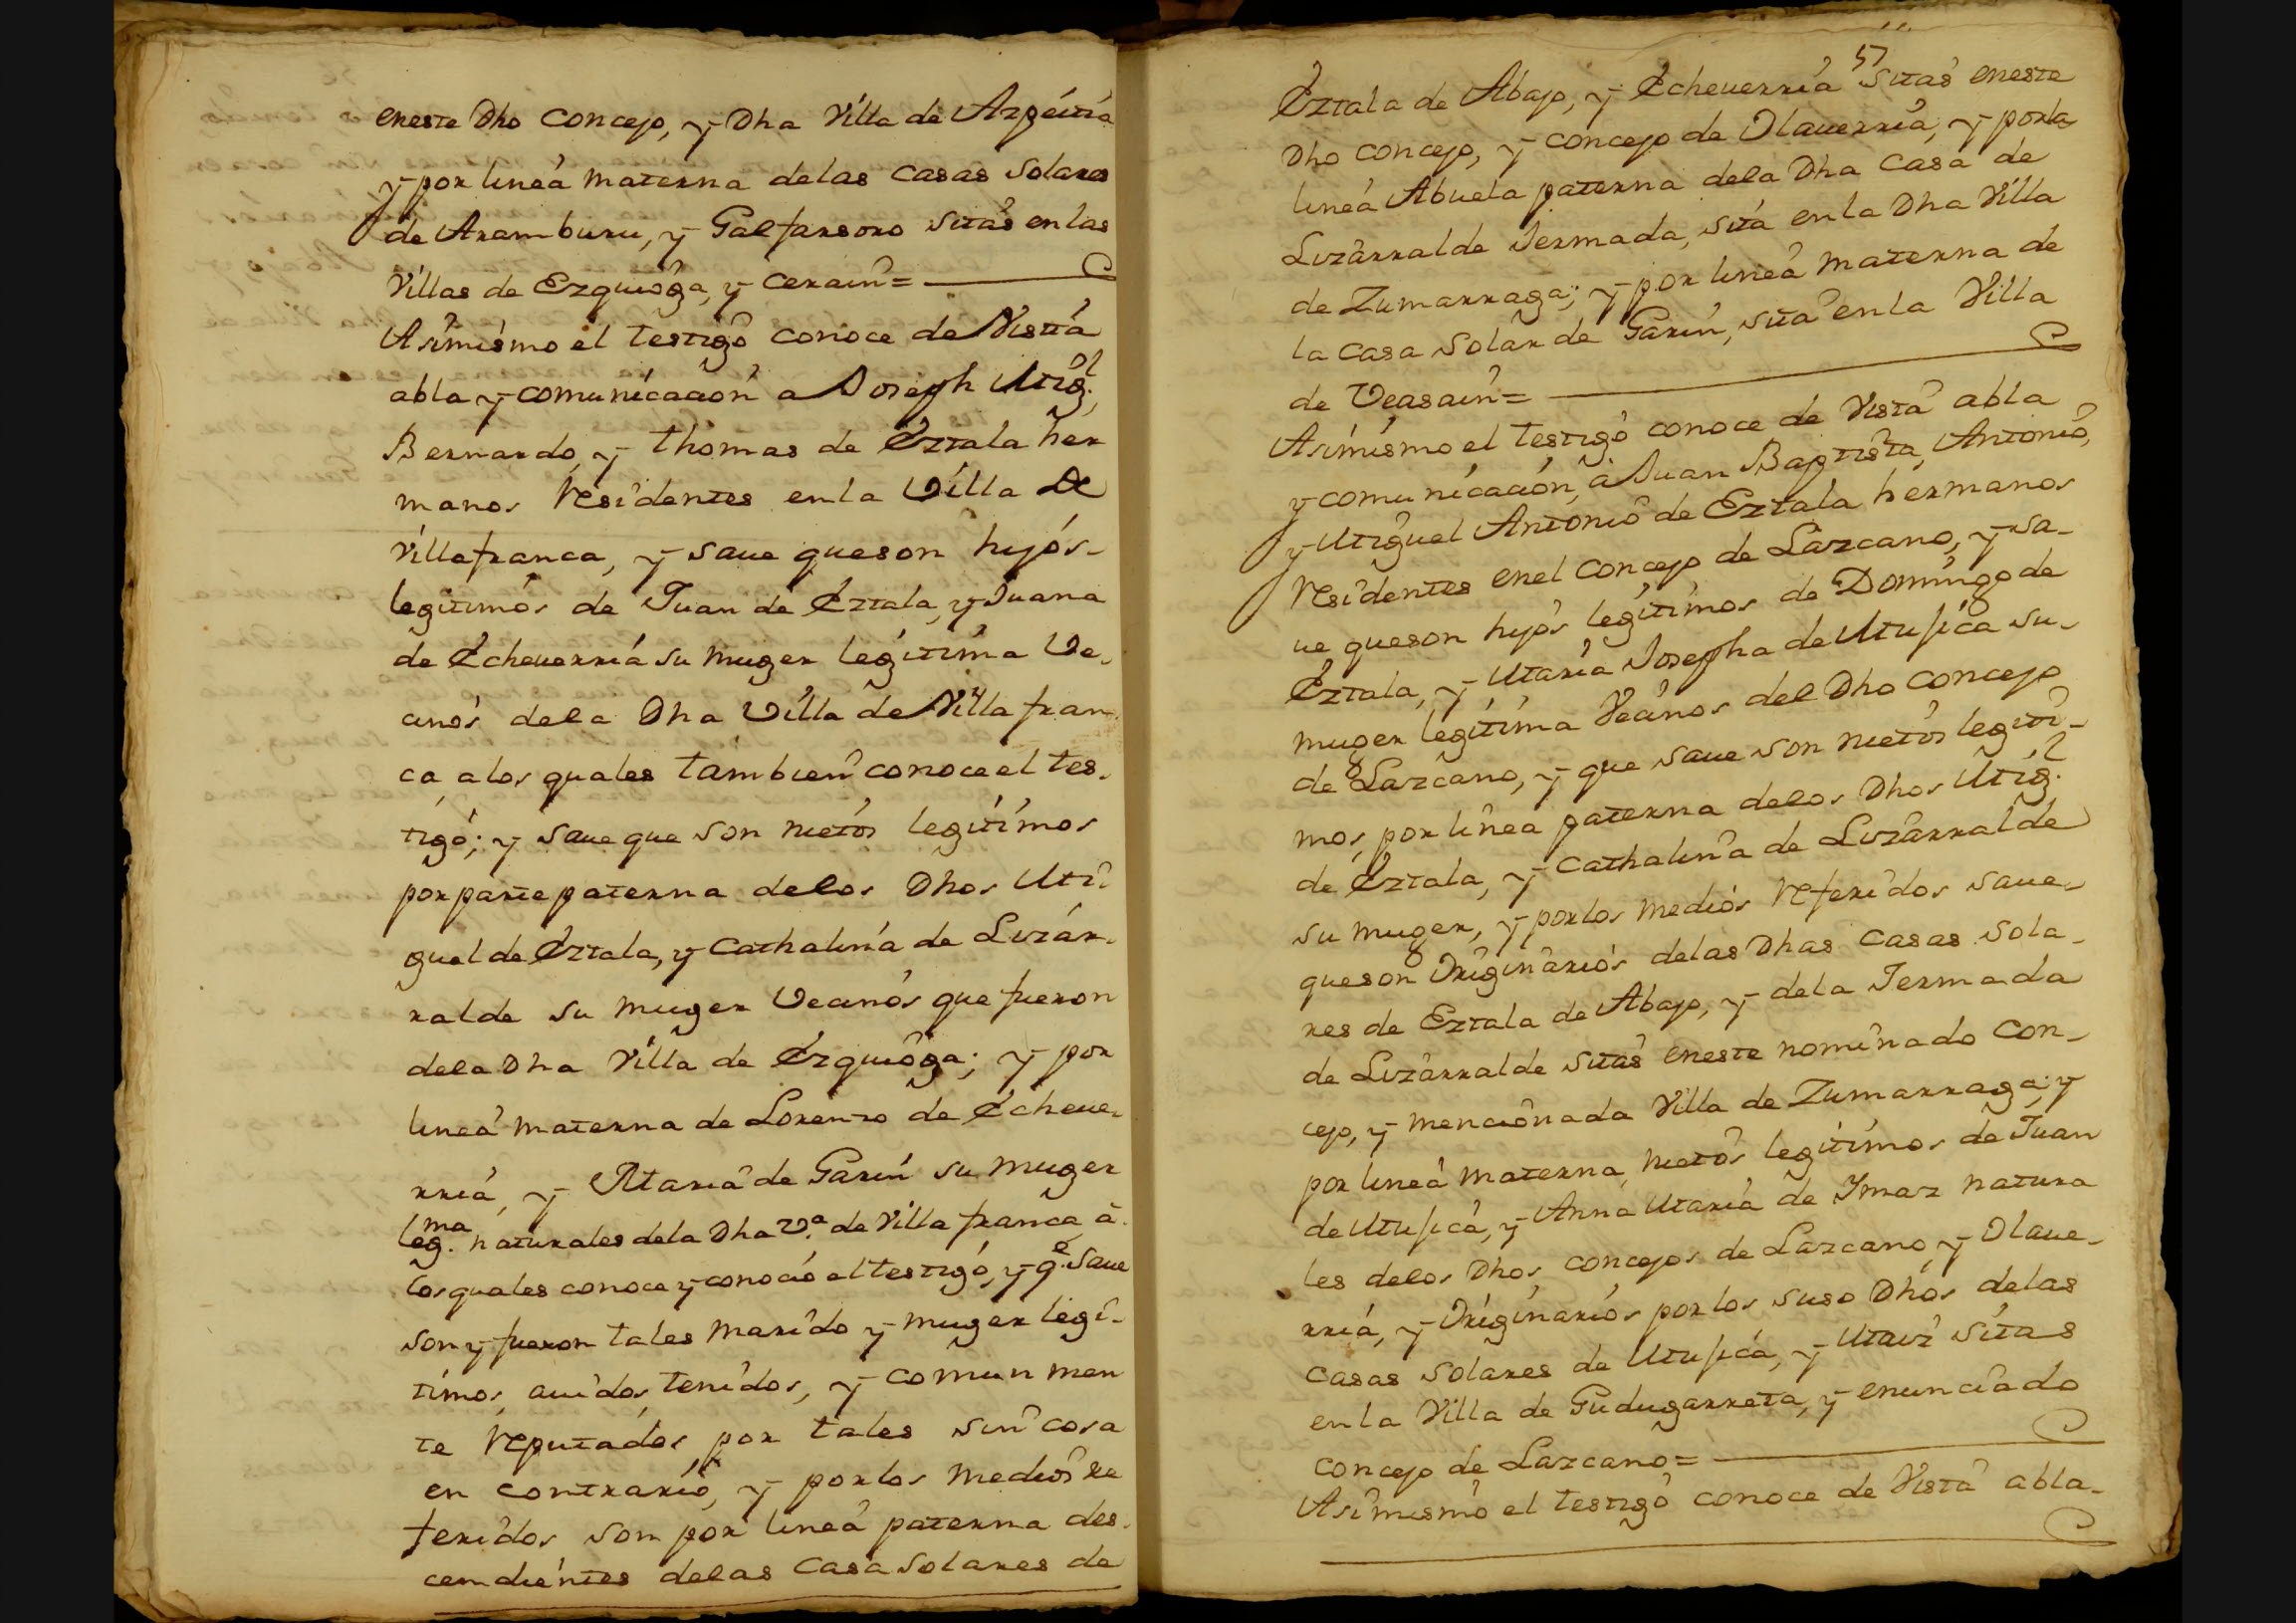 eneste Dho Concejo, y Dha Villa de Azpéitia
y por lineá Materna delas Casas Solares
de Aramburu, y Galfarsoro sitas en las
Villas de Ezquioga, y Cerain=
Asimismo el testigo conoce de Vista
abla y comunicación a Joseph Mig.l
Bernardo, y thomas de Eztala her
manos Residentes en la Villa De
Villafranca, y saue queson hijos-
legitimos de Juan de Eztala, y Juana
de Echeuerria su Muger legitima Ve-
cinos dela Dha Villa de Villa fran-
ca alos quales tambien conoce el tes-
tigo; y saue que son nietos legitimos
por parte paterna delos Dhos Mi-
guel de Eztala, y Cathalina de Lizár-
ralde su Muger Vecinos que fueron
dela Dha Villa de Ezquioga; y por
lineá Materna de Lorenzo de Echeue-
rria, y Maria de Garin su Muger
leg.ma naturales dela Dha V.a de Villa franca, á
los quales conoce y conoció el testigo, y q.e saue
son y fueron tales Marido y Muger legi-
timos, auidos, tenidos, y comun men
te Reputados por tales sin cosa
en contrario, y por los Medios re
feridos son por lineá paterna des-
cendientes delas Casa Solares de
57
Eztala de Abajo, y Echeuerria sitas eneste
Dho Concejo, y Concejo de Olauerria, y por la
lineá Abuela paterna dela Dha Casa de
Lizárralde Iermada, sita en la Dha Villa
de Zumarraga; y por lineá Materna de
la Casa Solar de Garin, sita en la Villa
de Veasain=
Asimismo el testigo conoce de Vista abla
y comunicación, á Juan Baptista, Antonio,
y Miguel Antonio de Eztala hermanos
Residentes enel Concejo de Lazcano, y sa-
ue queson hijos legitimos de Domingo de
Eztala, y Maria Josepha de Mujica su-
muger legitima Vecinos del Dho Concejo
de Lazcano, y que saue son nietos legiti-
mos, por linea paterna delos Dhos Mig.l
de Eztala, y Cathalina de Lizárralde
su muger, y por los Medios Referidos saue-
queson Originarios delas Dhas Casas Sola-
res de Eztala de Abajo, y dela Iermada
de Lizárralde sitas eneste nominado Con-
cejo, y Mencionada Villa de Zumarraga; y
por lineá Materna, nietos legitimos de Juan
de Mujica, y Anna Maria de Ymaz natura
les delos Dhos Concejos de Lazcano, y Olaue-
rria, y Originarios por los suso Dhos delas
Casas Solares de Mujica, y Maiz sitas
en la Villa de Gudugarreta, y enunciado
Concejo de Lazcano=
Asimismo el testigo conoce de Vista abla-